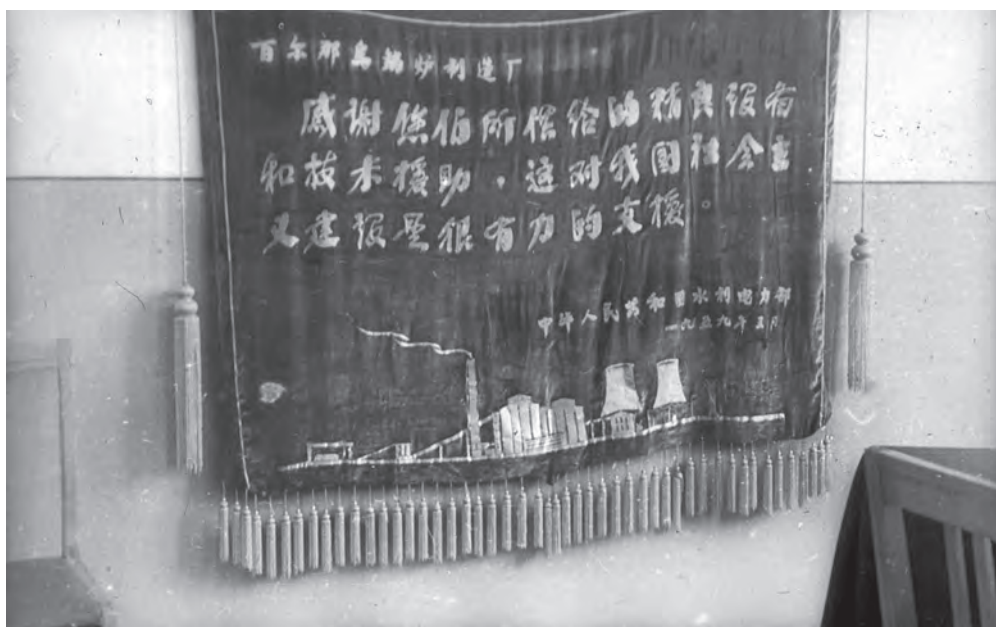 百尔那乌锅炉制造厂
感谢您们所供给的精良设备
和技术援助，这对我国社会主
义建设是很有力的支援。
中华人民共和国水利电力部
一九五九年五月